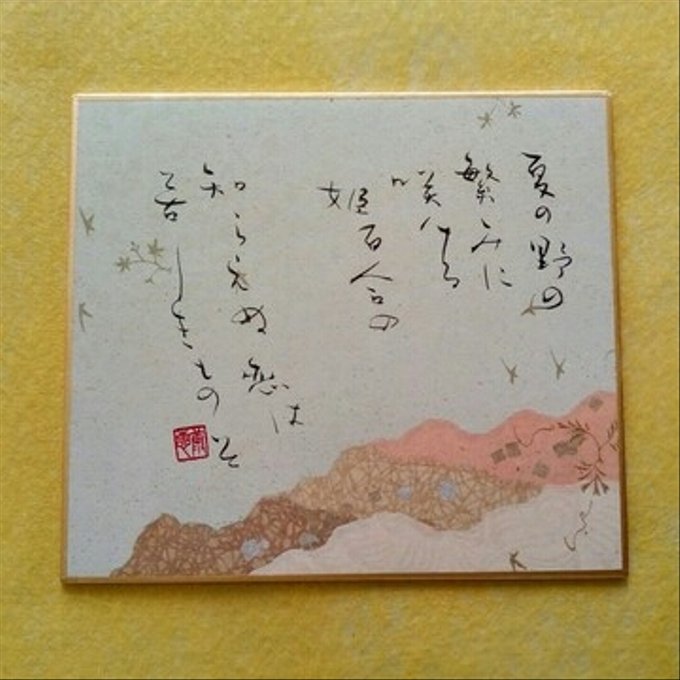 夏の野の
繁みに
咲ける
姫百合の
知らえぬ恋は
苦しきものそ